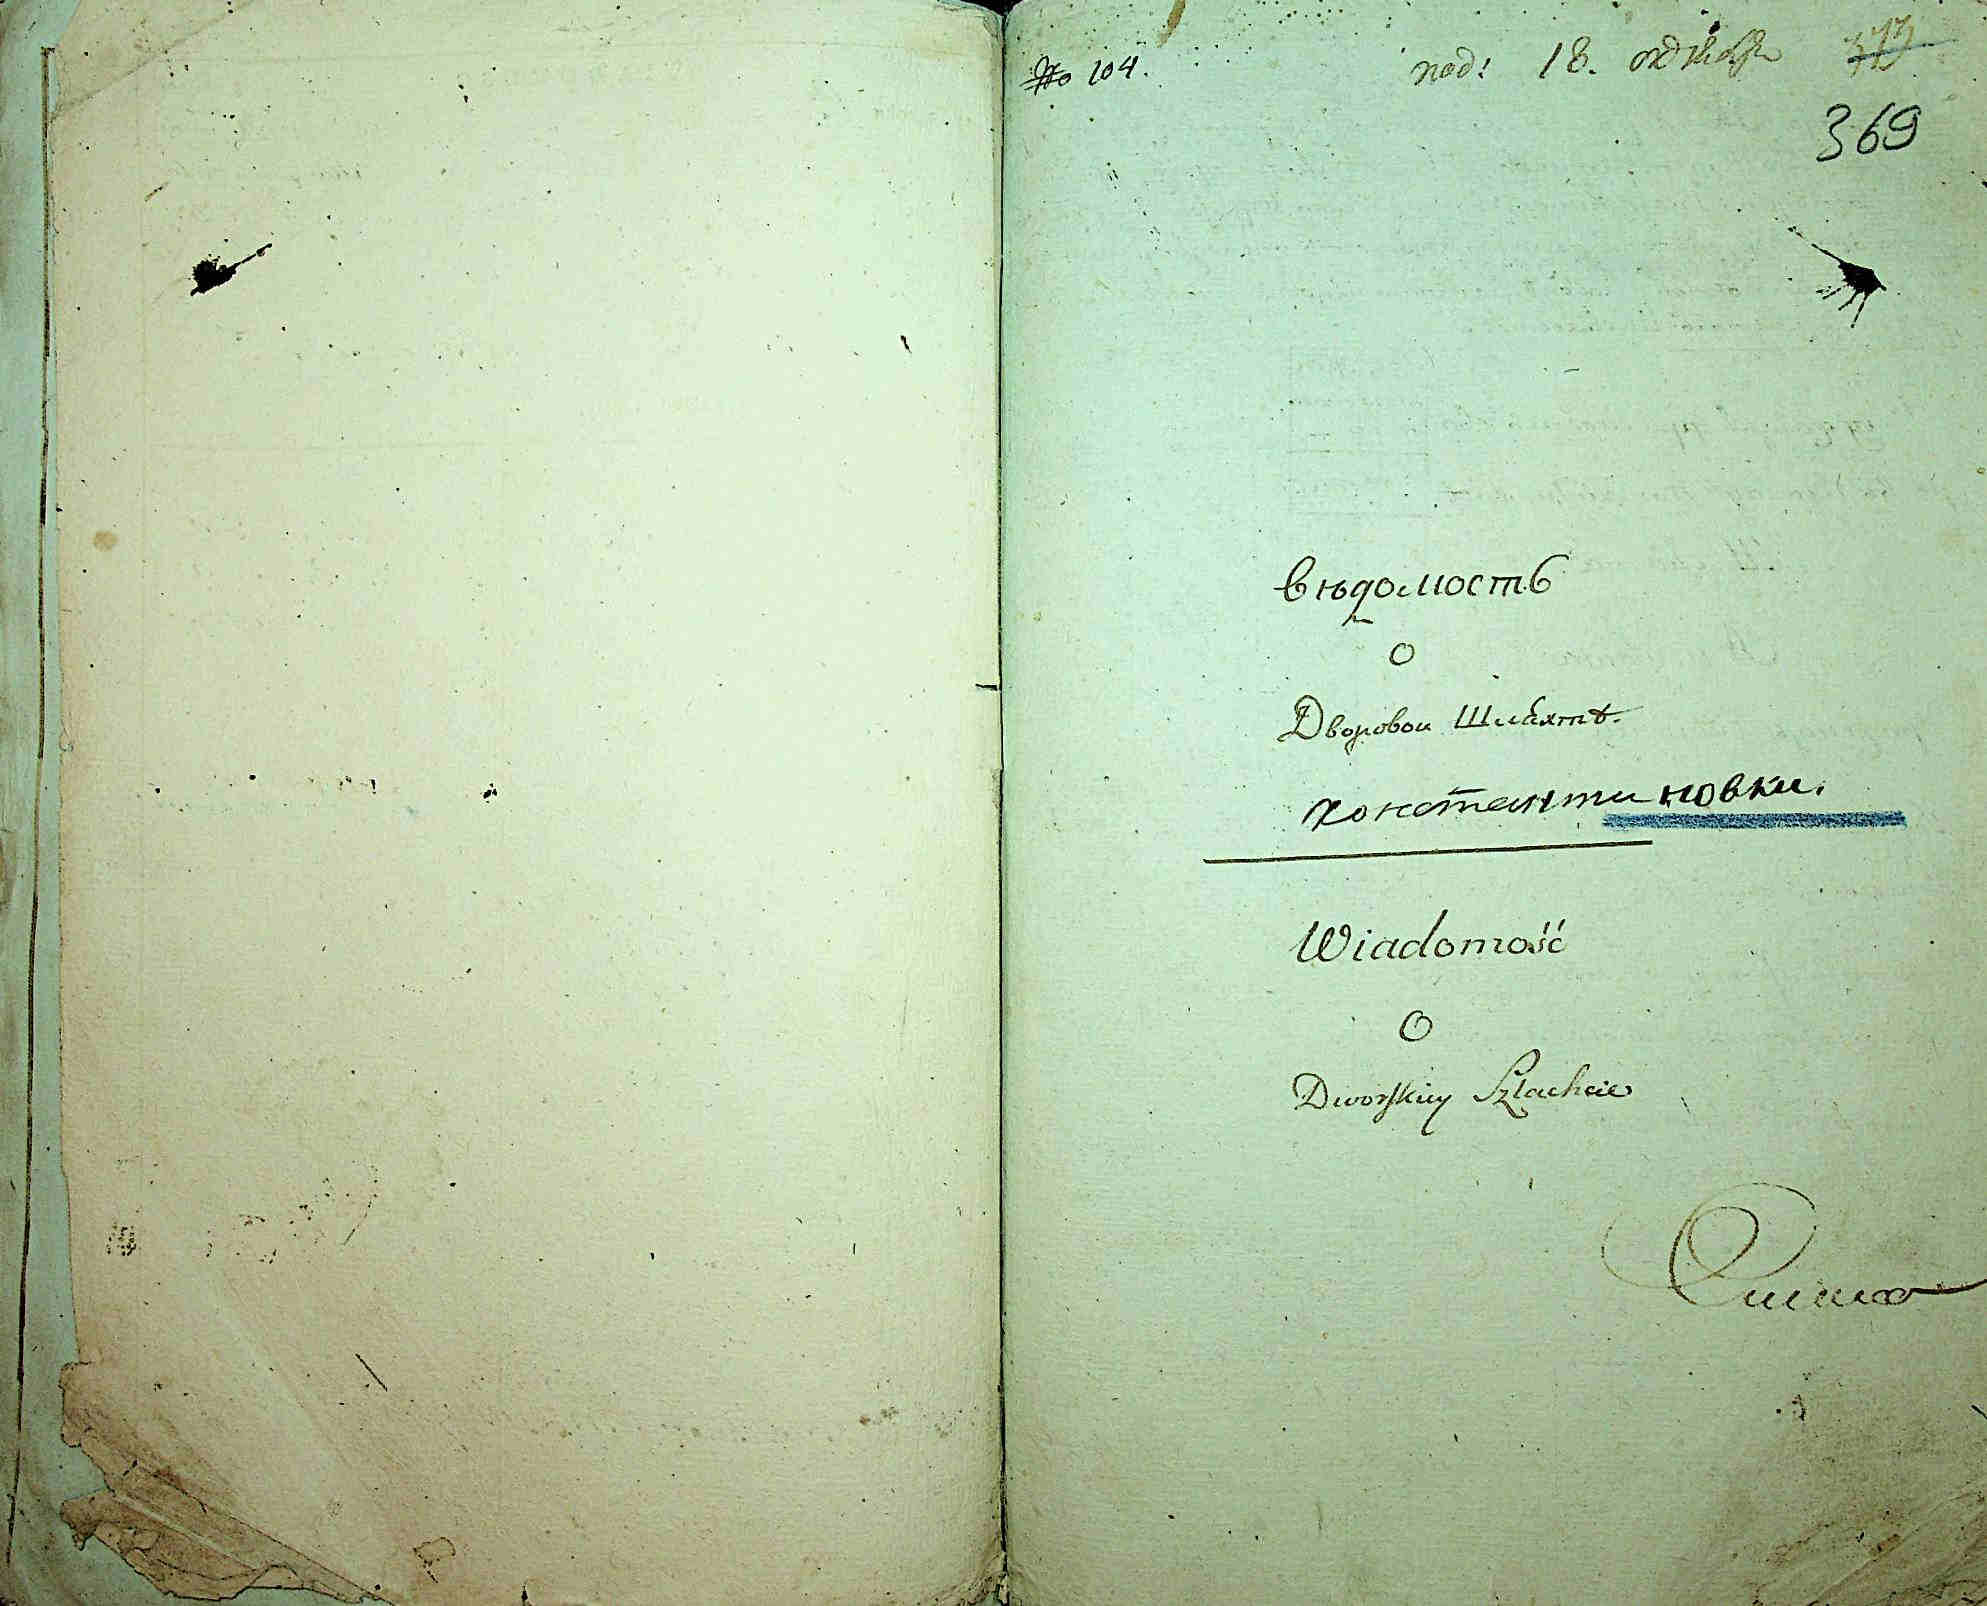 № 104. под: 18. октября 373
369
вѣдомость
о
Дворовои Шляхтѣ.
константиновки.
Wiadomość
O
Dworskiey Szlachcie